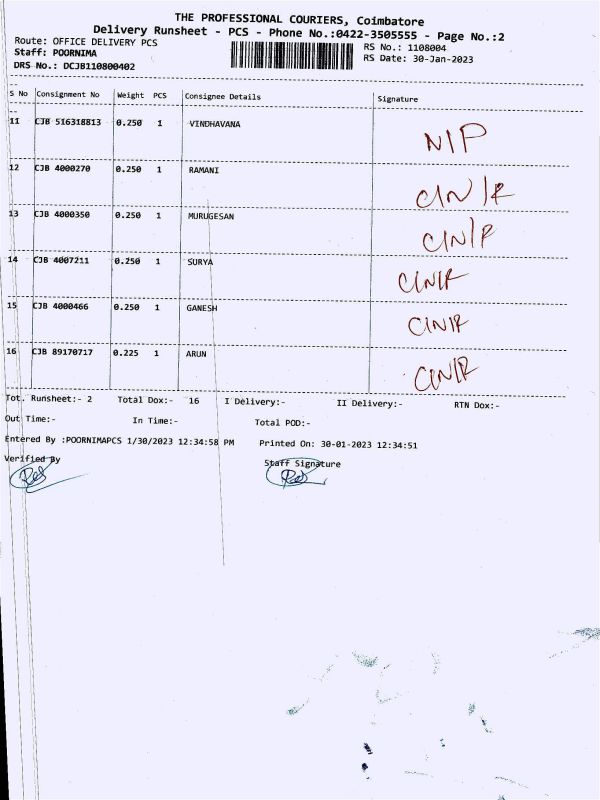 THE PROFESSIONAL COURIERS, Coimbatore
Delivery Runsheet - PCS - Phone No.:0422-3505555 - Page No.:2
Route: OFFICE DELIVERY PCS
RS No.: 1108004
Staff: POORNIMA
RS Date: 30-Jan-2023
DRS No.: DCJB110800402
S No Consignment No Weight PCS Consignee Details Signature
11 CJB 516318813 0.250 1 VINDHAVANA N/P
12 CJB 4000270 0.250 1 RAMANI C/N/R
13 CJB 4000350 0.250 1 MURUGESAN C/N/R
14 CJB 4007211 0.250 1 SURYA C/N/R
15 CJB 4000466 0.250 1 GANESH C/N/R
16 CJB 89170717 0.225 1 ARUN C/N/R
Tot. Runsheet:- 2 Total Dox:- 16 I Delivery:- II Delivery:- RTN Dox:-
Out Time:- In Time:- Total POD:-
Entered By :POORNIMAPCS 1/30/2023 12:34:58 PM Printed On: 30-01-2023 12:34:51
Verified By Staff Signature